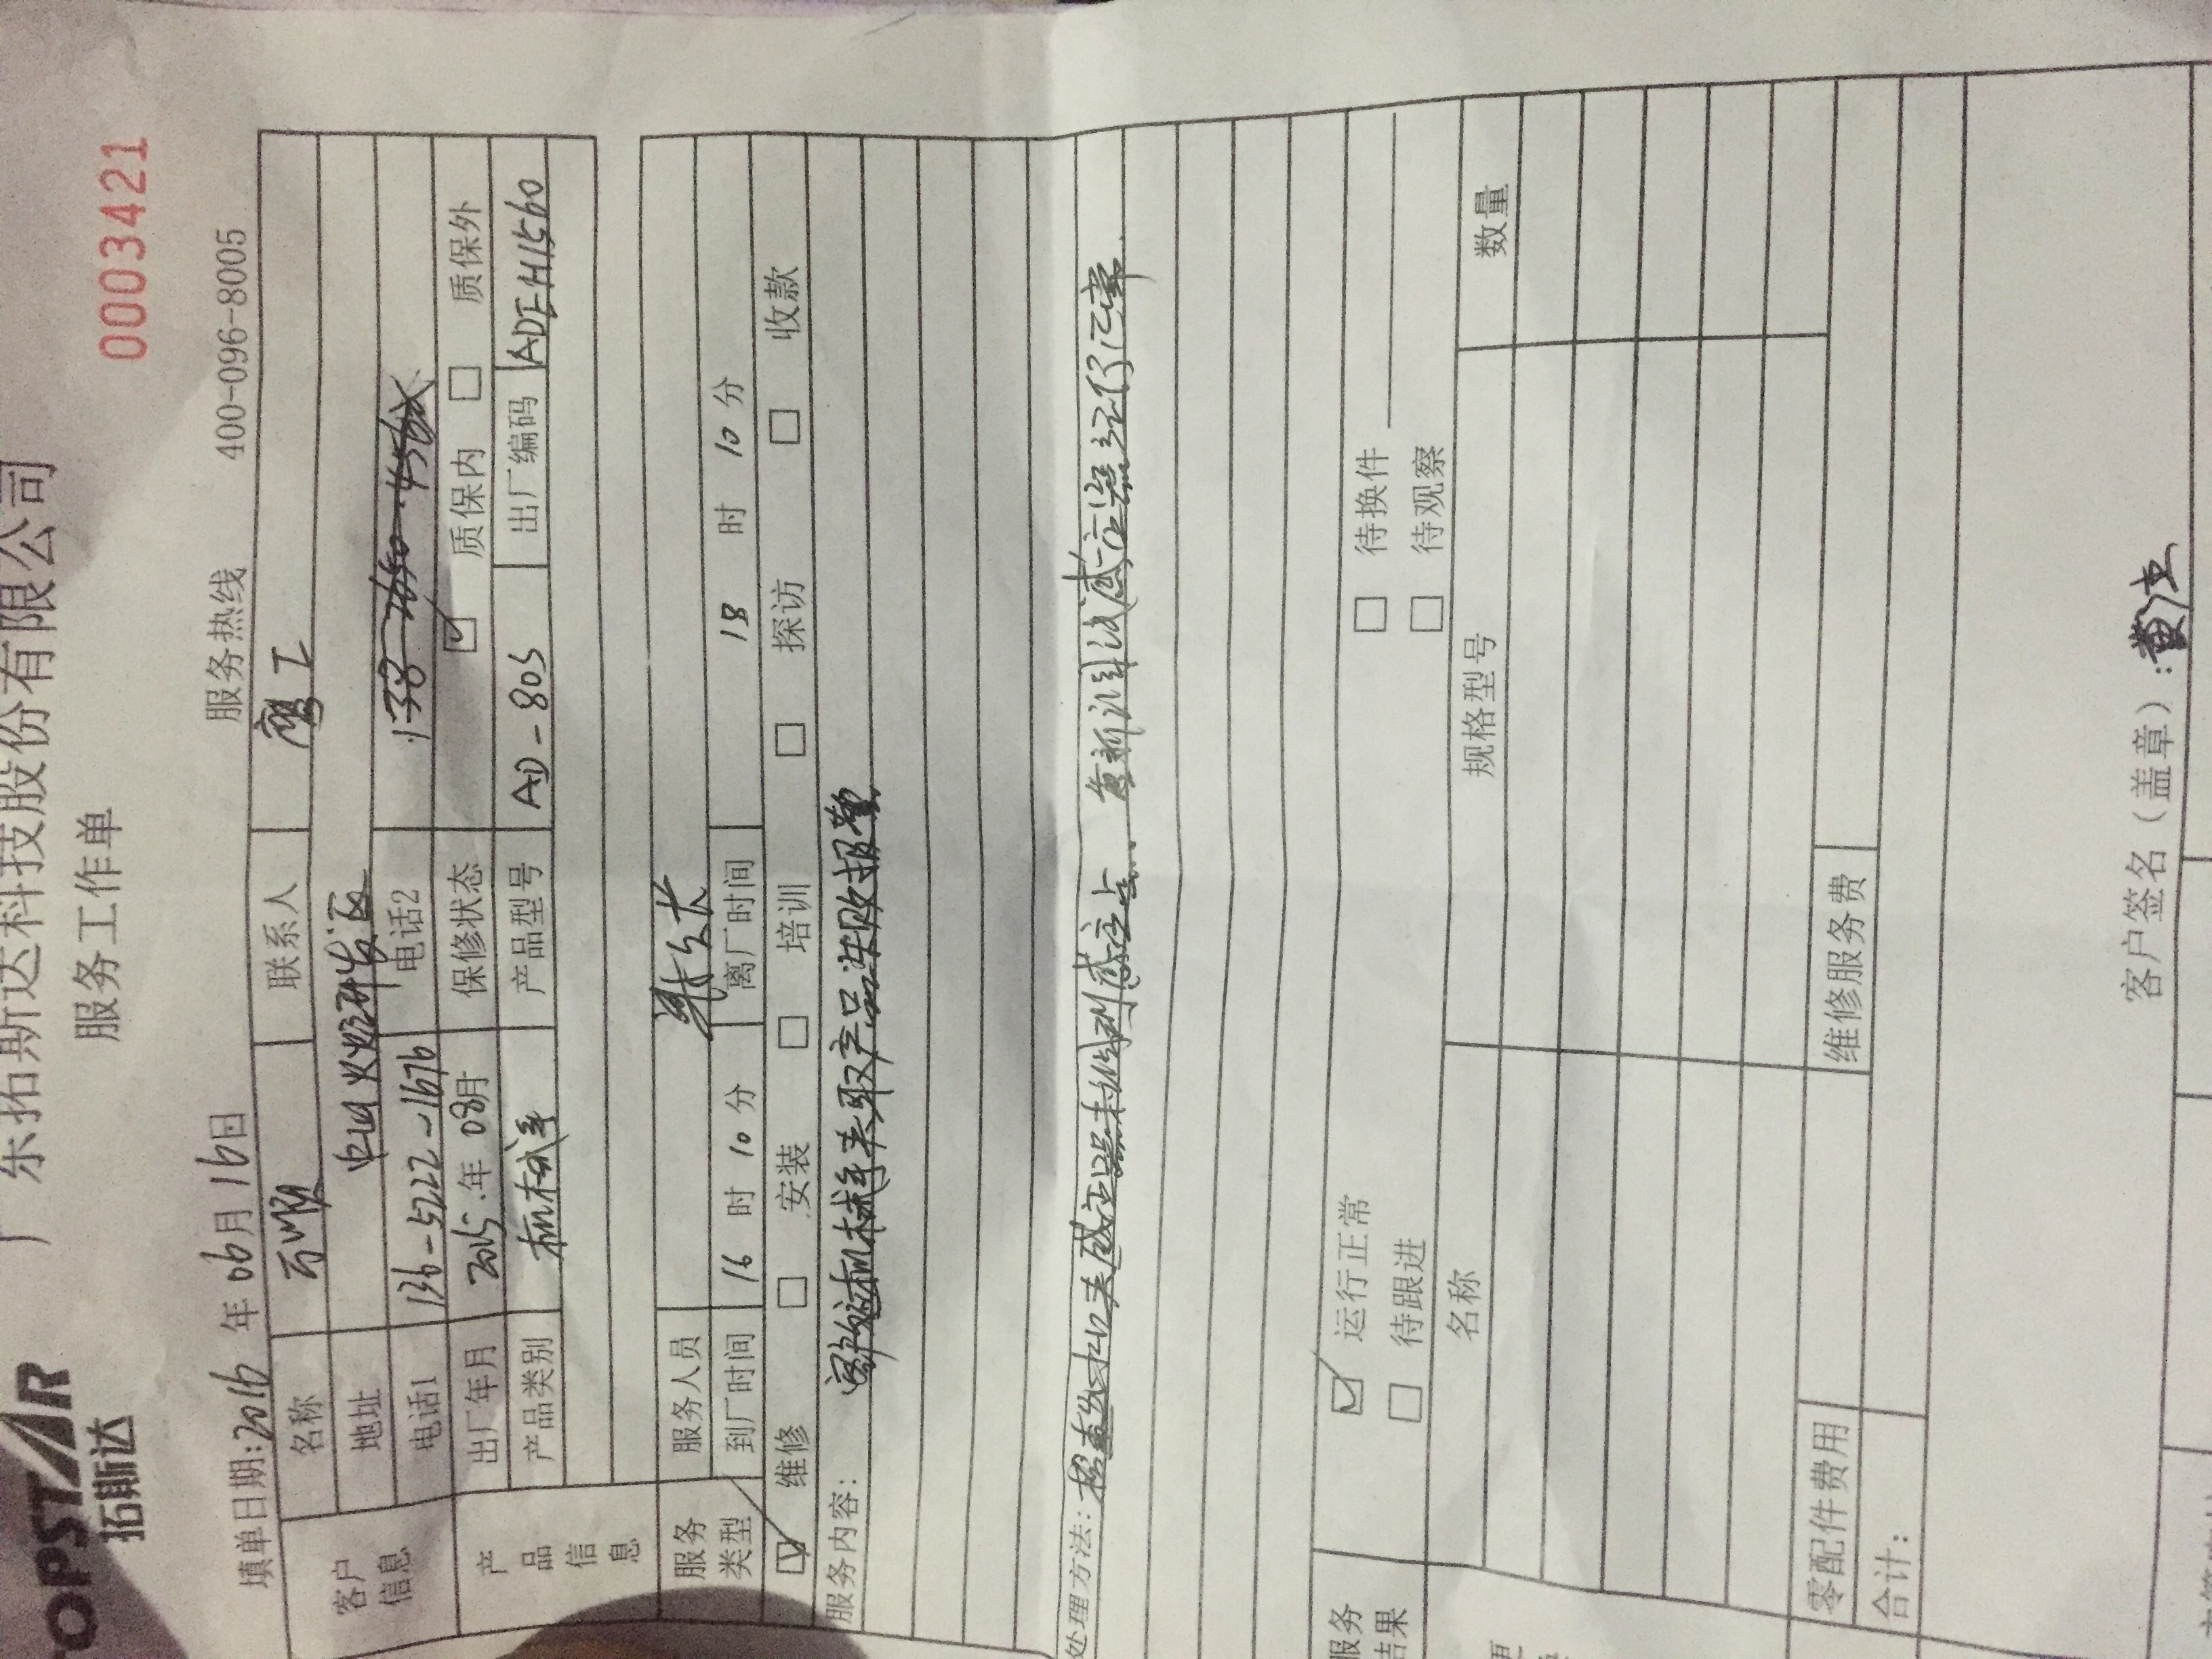 TOPSTAR
拓斯达
广东拓斯达科技股份有限公司
服务工作单
0003421
填单日期:2016年06月16日 服务热线 400-096-8005
客户信息
名称 联系人 工
地址 中山火炬开发区
电话1 136-5222-1676 电话2
产品信息
出厂年月 2015年08月 保修状态 ☑ 质保内 □ 质保外
产品类别 机械手 产品型号 AD-80S 出厂编码
服务类型
服务人员
到厂时间 16时10分 离厂时间 18时10分
☑ 维修 □ 安装 □ 培训 □ 探访 □ 收款
服务内容: 客户反应机械手夹取产品失败报警
处理方法: 检查发现夹感应器未检测到感应点. 重新调试感应器运行正常.
服务结果
☑ 运行正常 □ 待换件
□ 待跟进 □ 待观察
更
名称 规格型号 数量
零配件费用 维修服务费
合计:
客户签名(盖章):